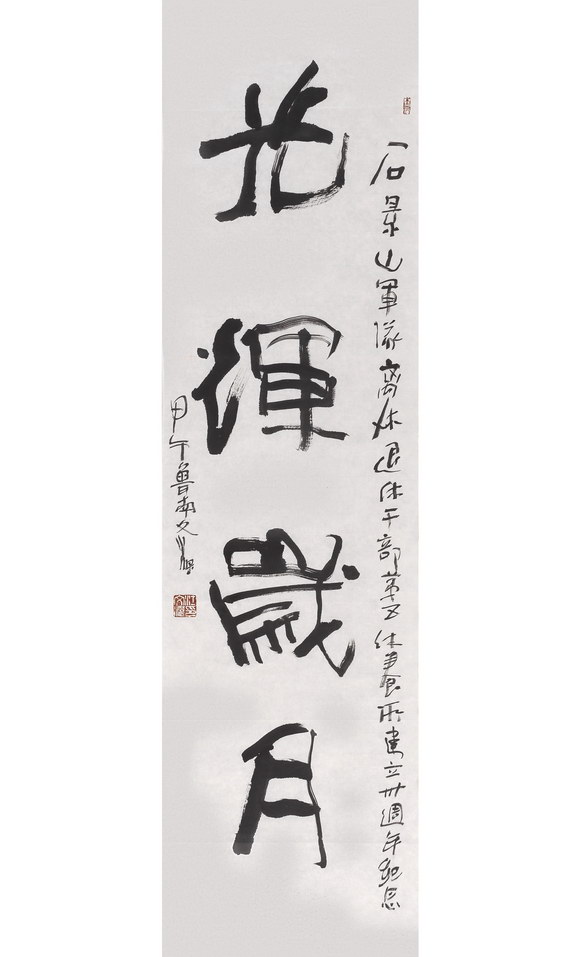 石景山軍隊离休退休干部第五休養所建立卅週年紀念
光煇歲月
甲午魯南文